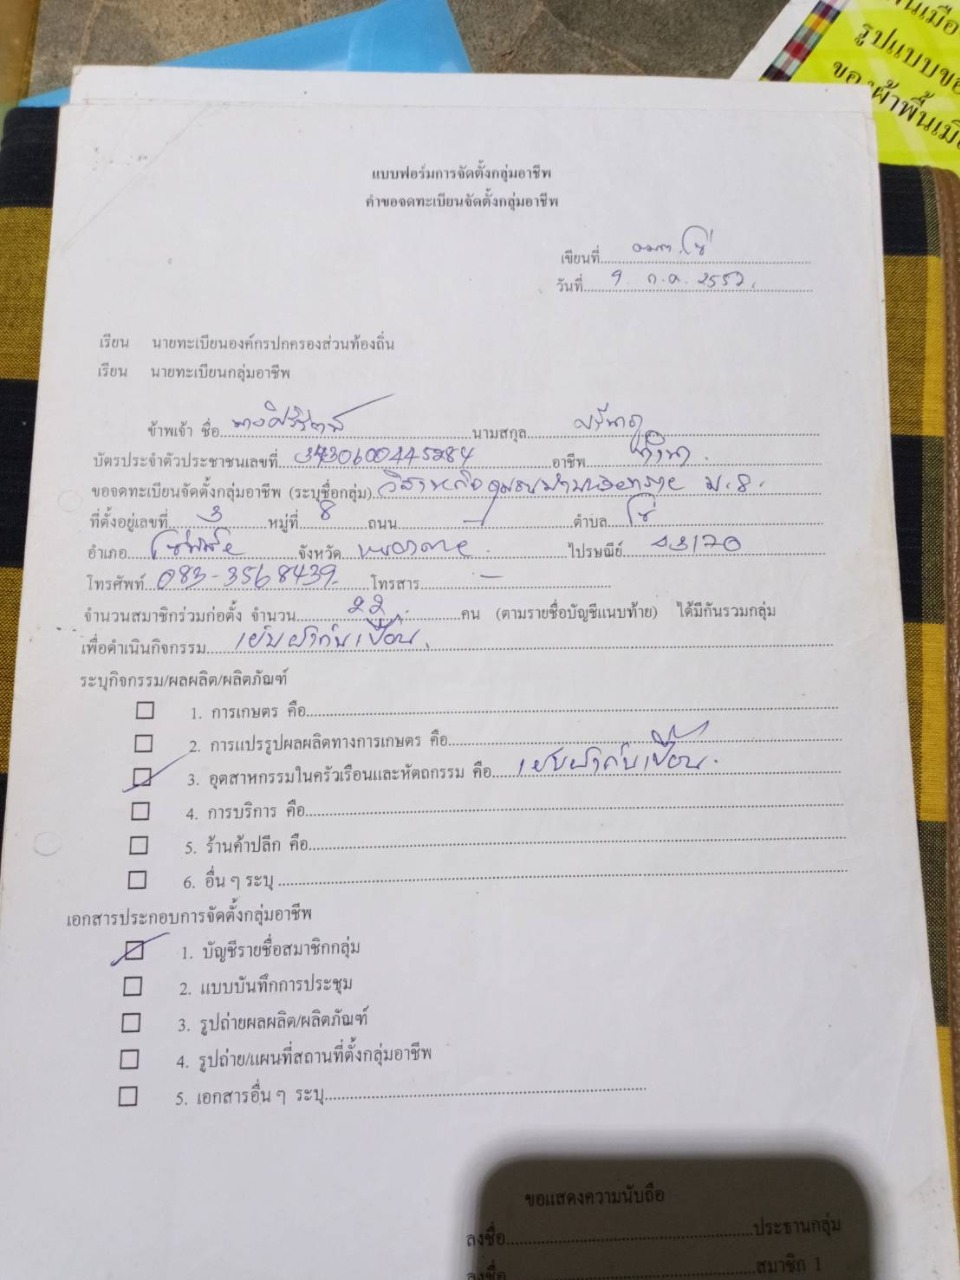 พื้นเมือ
รูปแบบขอ
ของผ้าพื้นเมือ
แบบฟอร์มการจัดตั้งกลุ่มอาชีพ
คำขอจดทะเบียนจัดตั้งกลุ่มอาชีพ
เขียนที่
วันที่ 9 ก.ค. 2552
เรียน นายทะเบียนองค์กรปกครองส่วนท้องถิ่น
เรียน นายทะเบียนกลุ่มอาชีพ
ข้าพเจ้า ชื่อ นามสกุล
บัตรประจำตัวประชาชนเลขที่ อาชีพ ทำนา
ขอจดทะเบียนจัดตั้งกลุ่มอาชีพ (ระบุชื่อกลุ่ม) วิสาหกิจชุมชน ม.8.
ที่ตั้งอยู่เลขที่ 3 หมู่ที่ 8 ถนน - ตำบล โซ่
อำเภอ โซ่พิสัย จังหวัด หนองคาย ไปรษณีย์ 43170
โทรศัพท์ 083-3568439 โทรสาร -
จำนวนสมาชิกร่วมก่อตั้ง จำนวน 22 คน (ตามรายชื่อบัญชีแนบท้าย) ได้มีกันรวมกลุ่ม
เพื่อดำเนินกิจกรรม เย็บผ้ากันเปื้อน
ระบุกิจกรรม/ผลผลิต/ผลิตภัณฑ์
1. การเกษตร คือ
2. การแปรรูปผลผลิตทางการเกษตร คือ
3. อุตสาหกรรมในครัวเรือนและหัตถกรรม คือ เย็บผ้ากันเปื้อน
4. การบริการ คือ
5. ร้านค้าปลีก คือ
6. อื่น ๆ ระบุ
เอกสารประกอบการจัดตั้งกลุ่มอาชีพ
1. บัญชีรายชื่อสมาชิกกลุ่ม
2. แบบบันทึกการประชุม
3. รูปถ่ายผลผลิต/ผลิตภัณฑ์
4. รูปถ่าย/แผนที่สถานที่ตั้งกลุ่มอาชีพ
5. เอกสารอื่น ๆ ระบุ
ขอแสดงความนับถือ
ลงชื่อ ประธานกลุ่ม
ลงชื่อ สมาชิก 1